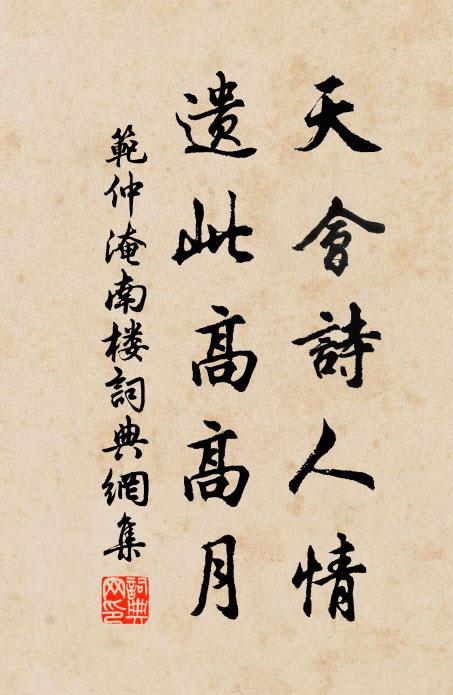 天會詩人情
遺此高高月
範仲淹南楼詞典網集
詞典網印